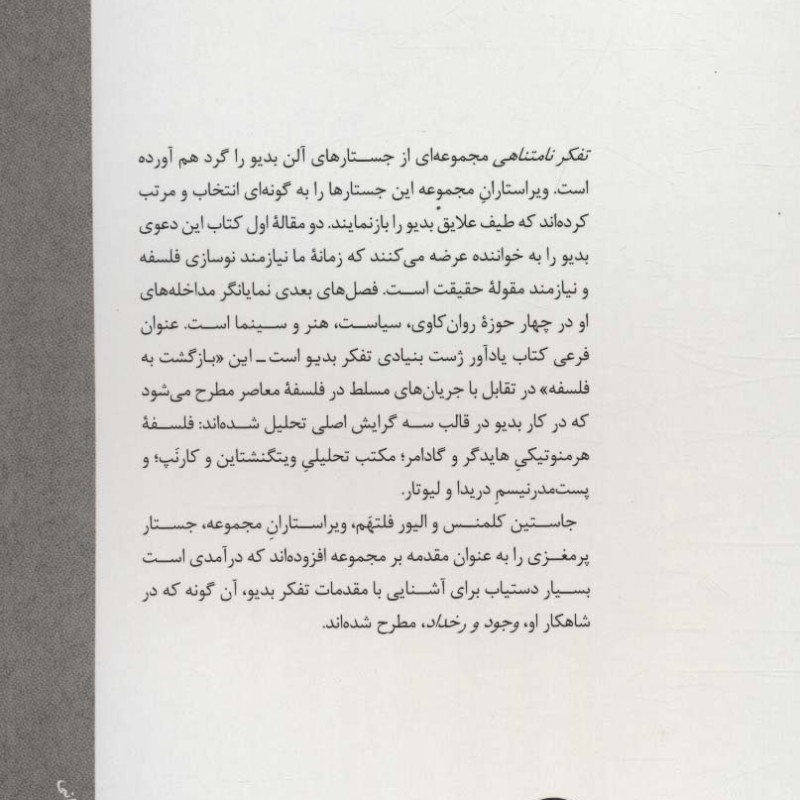 تفکر نامتناهی مجموعه‌ای از جستارهای آلن بدیو را گرد هم آورده
است. ویراستارانِ مجموعه این جستارها را به گونه‌ای انتخاب و مرتب
کرده‌اند که طیف علایق بدیو را بازنمایند. دو مقالهٔ اول کتاب این دعوی
بدیو را به خواننده عرضه می‌کنند که زمانهٔ ما نیازمند نوسازی فلسفه
و نیازمند مقولهٔ حقیقت است. فصل‌های بعدی نمایانگر مداخله‌های
او در چهار حوزهٔ روان‌کاوی، سیاست، هنر و سینما است. عنوان
فرعی کتاب یادآور ژست بنیادی تفکر بدیو است ــ این «بازگشت به
فلسفه» در تقابل با جریان‌های مسلط در فلسفهٔ معاصر مطرح می‌شود
که در کار بدیو در قالب سه گرایش اصلی تحلیل شده‌اند: فلسفهٔ
هرمنوتیکیِ هایدگر و گادامر؛ مکتب تحلیلیِ ویتگنشتاین و کارنَپ؛ و
پست‌مدرنیسمِ دریدا و لیوتار.
جاستین کلمنس و الیور فلتهَم، ویراستارانِ مجموعه، جستار
پرمغزی را به عنوان مقدمه بر مجموعه افزوده‌اند که درآمدی است
بسیار دستیاب برای آشنایی با مقدمات تفکر بدیو، آن گونه که در
شاهکار او، وجود و رخداد، مطرح شده‌اند.